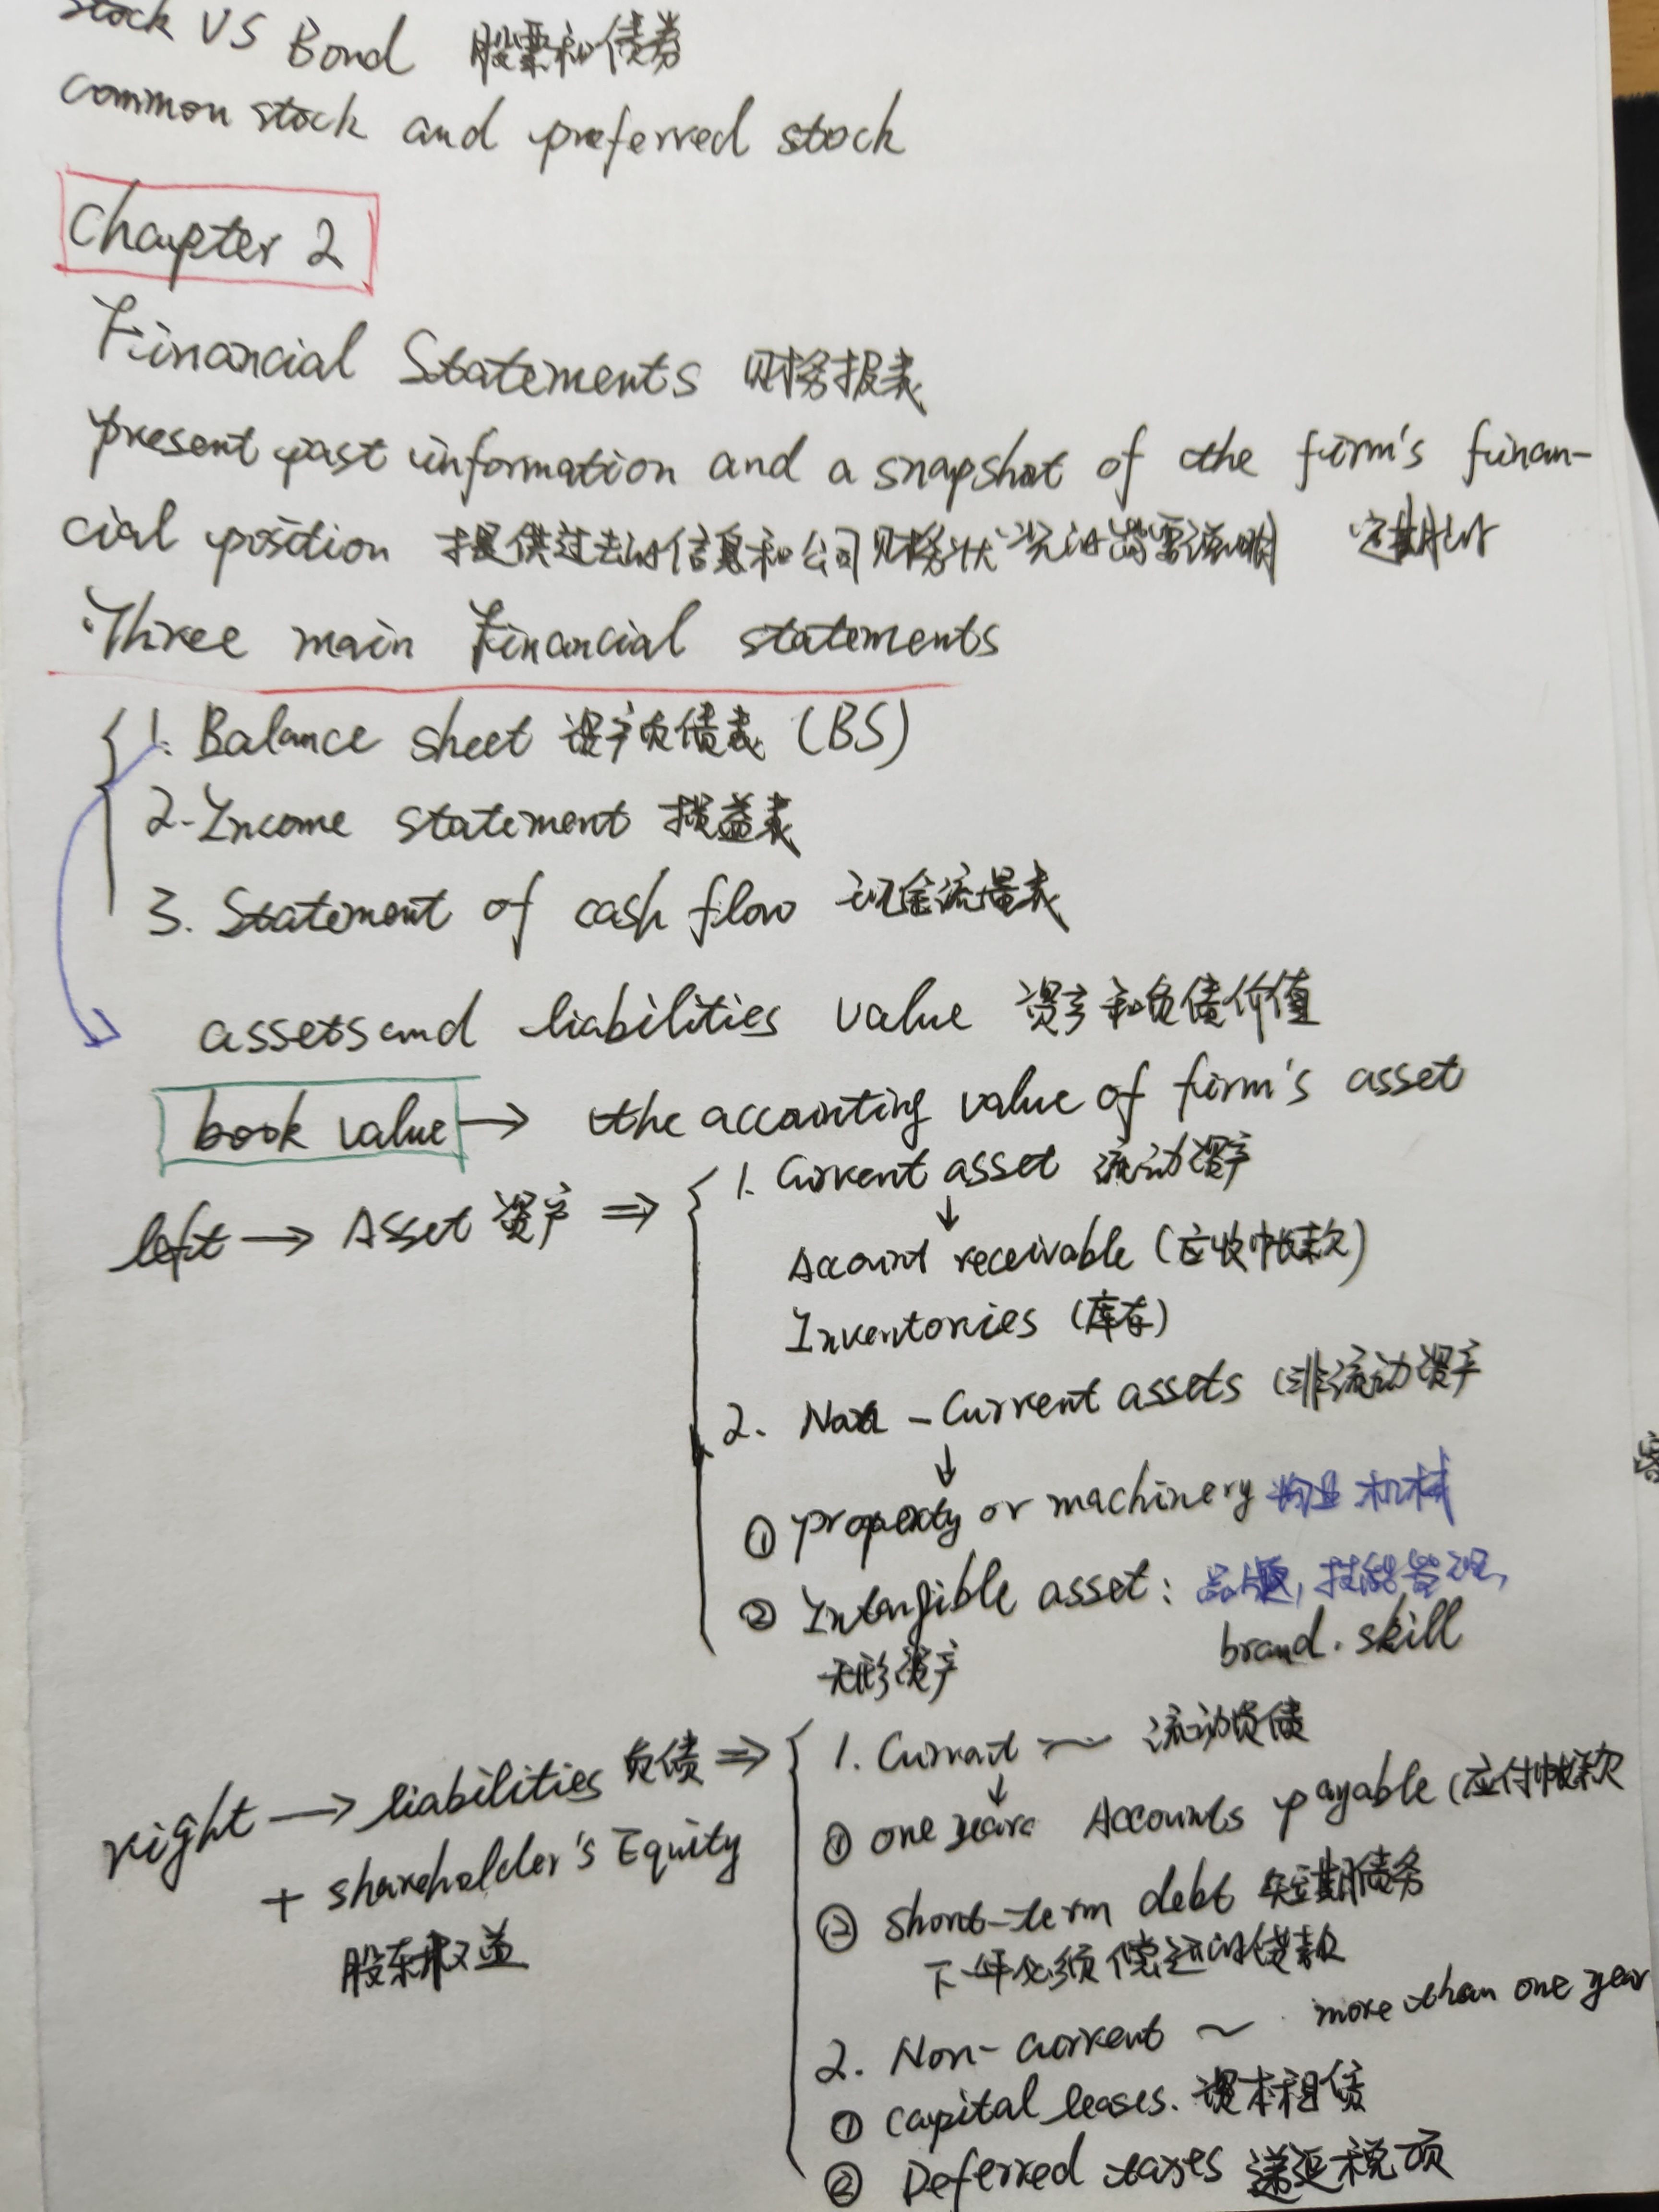 Stock VS Bond 股票和债券
common stock and preferred stock
Chapter 2
Financial Statements 财务报表
present past information and a snapshot of the firm's finan-
cial position 提供过去的信息和公司财务状况的简要说明 定期的
·Three main Financial statements
1. Balance sheet 资产负债表 (BS)
2. Income statement 损益表
3. Statement of cash flow 现金流量表
assets and liabilities value 资产和负债价值
book value → the accounting value of firm's asset
left → Asset 资产 ⇒
1. Current asset 流动资产
↓
Account receivable (应收帐款)
Inventories (库存)
2. Non - Current assets (非流动资产
↓
① property or machinery 物业 机械
② Intangible asset: 品牌, 技能管理,
brand. skill
无形资产
right → liabilities 负债 ⇒
+ shareholder's Equity
股东权益
1. Current ~ 流动负债
↓
① one year Accounts payable (应付帐款
② short-term debt 短期债务
下一年必须偿还的借款
2. Non-current ~ more than one year
① capital leases. 资本租赁
② Deferred taxes 递延税项